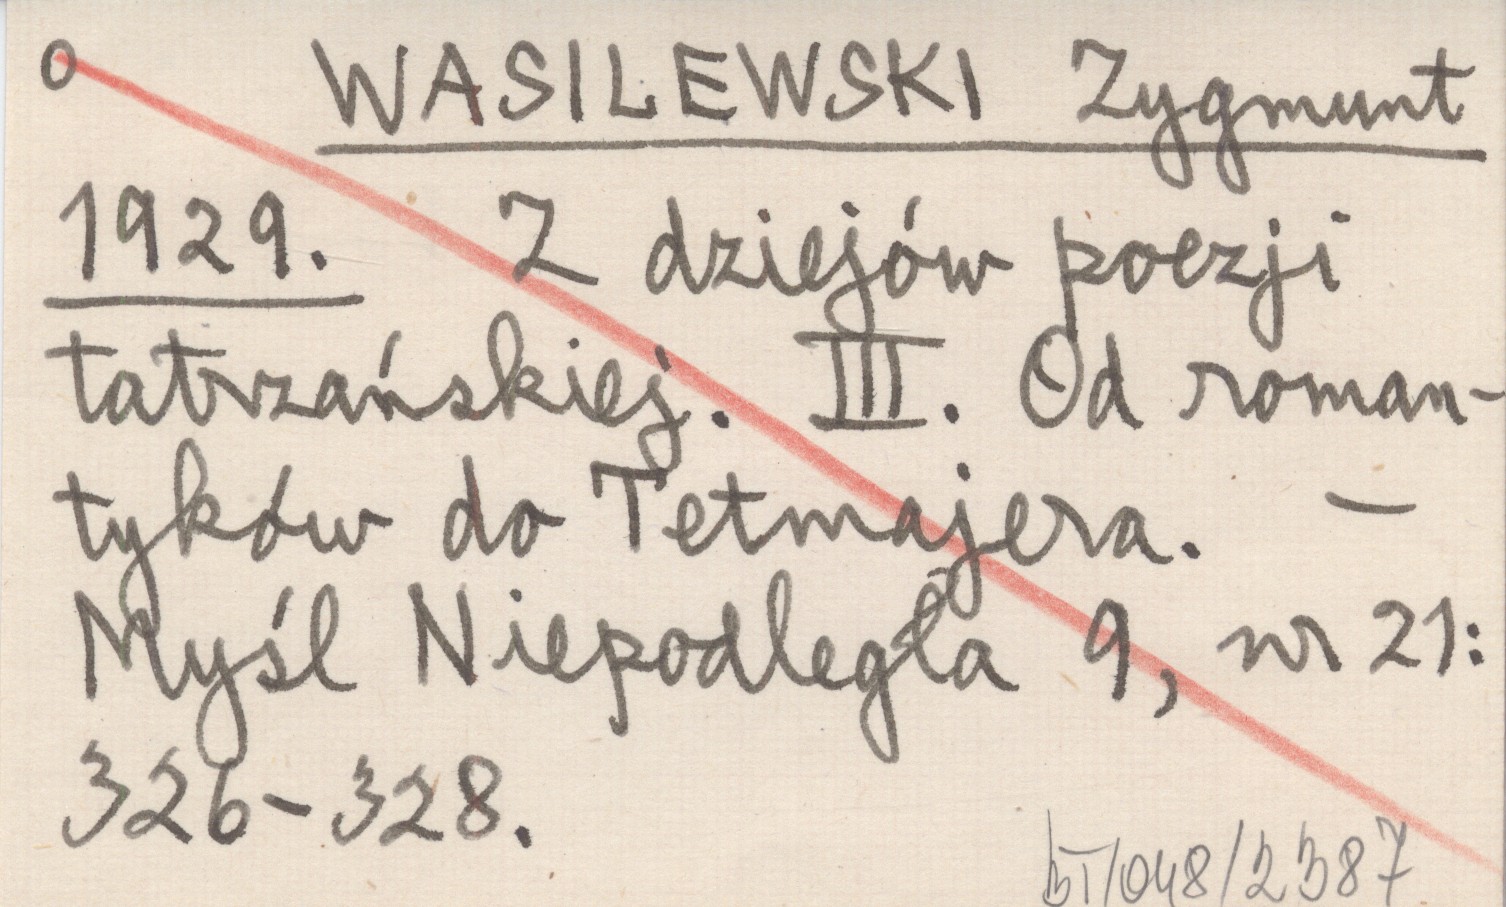 o WASILEWSKI Zygmunt
1929. Z dziejów poezji
tatrzańskiej. III. Od roman-
tyków do Tetmajera. —
Myśl Niepodległa 9, nr 21:
326-328.
BT/048/2387